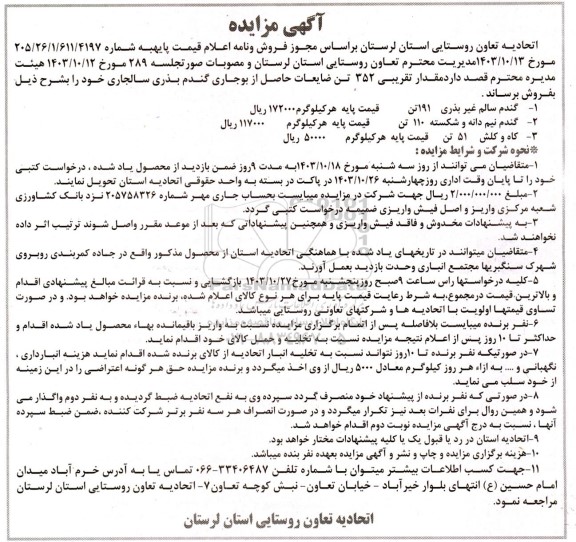 آگهی مزایده
اتحادیه تعاون روستایی استان لرستان براساس مجوز فروش ونامه اعلام قیمت پایهبه شماره ۲۰۵/۲۶/۱/۶۱۱/۴۱۹۷
مورخ ۱۴۰۳/۱۰/۱۳مدیریت محترم تعاون روستایی استان لرستان و مصوبات صورتجلسه ۲۸۹ مورخ ۱۴۰۳/۱۰/۱۲ هیئت
مدیره محترم قصد داردمقدار تقریبی ۳۵۲ تن ضایعات حاصل از بوجاری گندم بذری سالجاری خود را بشرح ذیل
بفروش برساند .
۱- گندم سالم غیر بذری ۱۹۱تن قیمت پایه هرکیلوگرم ۱۷۲۰۰۰ ریال
۲- گندم نیم دانه و شکسته ۱۱۰ تن قیمت پایه هرکیلوگرم ۱۱۷۰۰۰ ریال
۳- کاه و کلش ۵۱ تن قیمت پایه هرکیلوگرم ۵۰۰۰۰ ریال
*نحوه شرکت و شرایط مزایده :
۱-متقاضیان می توانند از روز سه شنبه مورخ ۱۴۰۳/۱۰/۱۸به مدت ۹روز ضمن بازدید از محصول یاد شده ، درخواست کتبی
خود را تا پایان وقت اداری روزچهارشنبه ۱۴۰۳/۱۰/۲۶ در پاکت در بسته به واحد حقوقی اتحادیه استان تحویل نمایند.
۲-مبلغ ۲/۰۰۰/۰۰۰/۰۰۰ ریال جهت شرکت در مزایده میبایست بحساب جاری مهر شماره ۲۰۵۷۵۸۳۲۶ نزد بانک کشاورزی
شعبه مرکزی واریز و اصل فیش واریزی ضمیمه درخواست کتبی گردد.
۳-به پیشنهادات مخدوش و فاقد فیش واریزی و همچنین پیشنهاداتی که بعد از موعد مقرر واصل شوند ترتیب اثر داده
نخواهند شد.
۴-متقاضیان میتوانند در تاریخهای یاد شده با هماهنگی اتحادیه استان از محصول مذکور واقع در جاده کمربندی روبروی
شهرک سنگبریها مجتمع انباری وحدت بازدید بعمل آورند.
۵-کلیه درخواستها راس ساعت ۹صبح روزپنجشنبه مورخ۱۴۰۳/۱۰/۲۷ بازگشایی و نسبت به قرائت مبالغ پیشنهادی اقدام
و بالاترین قیمت درمجموع،به شرط رعایت قیمت پایه برای هر نوع کالای اعلام شده، برنده مزایده خواهد بود. و در صورت
تساوی قیمتها اولویت با اتحادیه ها و شرکتهای تعاونی روستایی میباشد.
۶-نفر برنده میبایست بلافاصله پس از اتمام برگزاری مزایده نسبت به واریز باقیمانده بهاء محصول یاد شده اقدام و
حداکثر تا ۱۰ روز پس از اعلام نتیجه مزایده نسبت به تخلیه و حمل کالای خود اقدام نماید.
۷-در صورتیکه نفر برنده تا ۱۰روز نتواند نسبت به تخلیه انبار اتحادیه از کالای برنده شده اقدام نماید هزینه انبارداری ،
نگهبانی و .... به ازاء هر روز کیلوگرم معادل ۵۰۰۰ ریال از وی اخذ میگردد و برنده مزایده حق هر گونه اعتراضی را در این زمینه
از خود سلب می نماید.
۸-در صورتی که نفر برنده از پیشنهاد خود منصرف گردد سپرده وی به نفع اتحادیه ضبط گردیده و به نفر دوم واگذار می
شود و همین روال برای نفرات بعد نیز تکرار میگردد و در صورت انصراف هر سه نفر برتر شرکت کننده ،ضمن ضبط سپرده
آنها ، نسبت به درج آگهی مزایده نوبت دوم اقدام خواهد شد.
۹-اتحادیه استان در رد یا قبول یک یا کلیه پیشنهادات مختار خواهد بود.
۱۰-هزینه برگزاری مزایده و چاپ و نشر و آگهی مزایده بعهده نفر برنده میباشد.
۱۱-جهت کسب اطلاعات بیشتر میتوان با شماره تلفن ۳۳۴۰۶۴۸۷-۰۶۶ تماس یا به آدرس خرم آباد میدان
امام حسین (ع) انتهای بلوار خیرآباد - خیابان تعاون- نبش کوچه تعاون۷- اتحادیه تعاون روستایی استان لرستان
مراجعه نمود.
اتحادیه تعاون روستایی استان لرستان